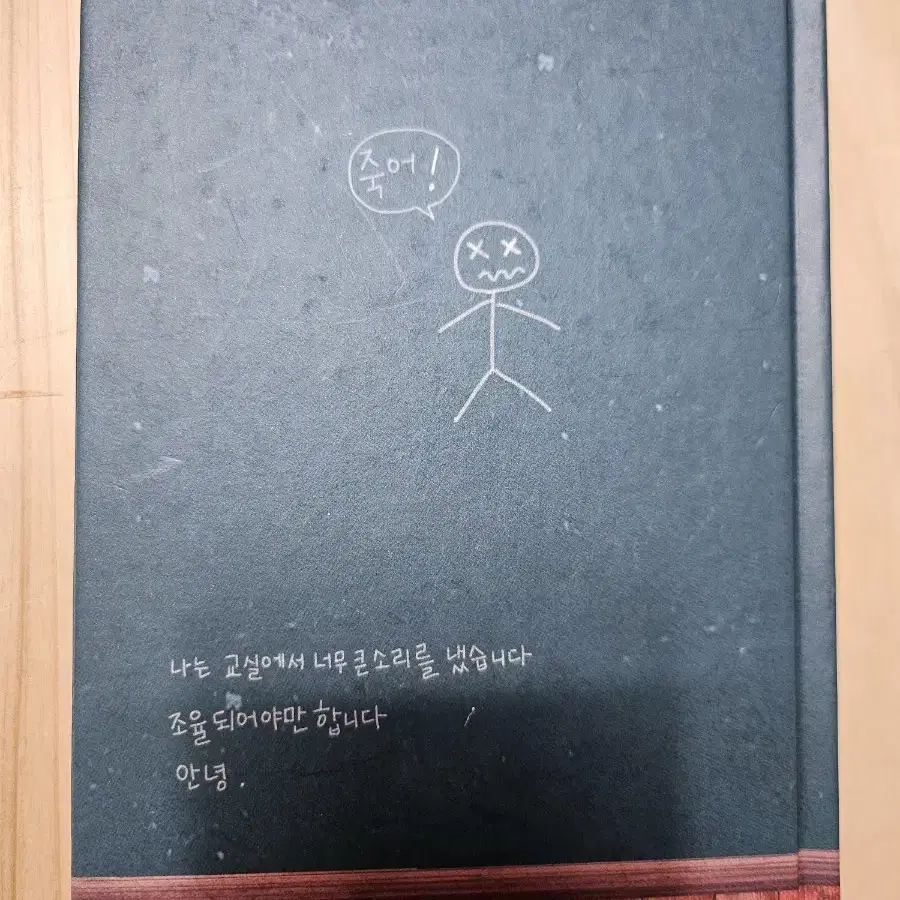 죽어!
나는 교실에서 너무 큰 소리를 냈습니다
조율되어야만 합니다
안녕.